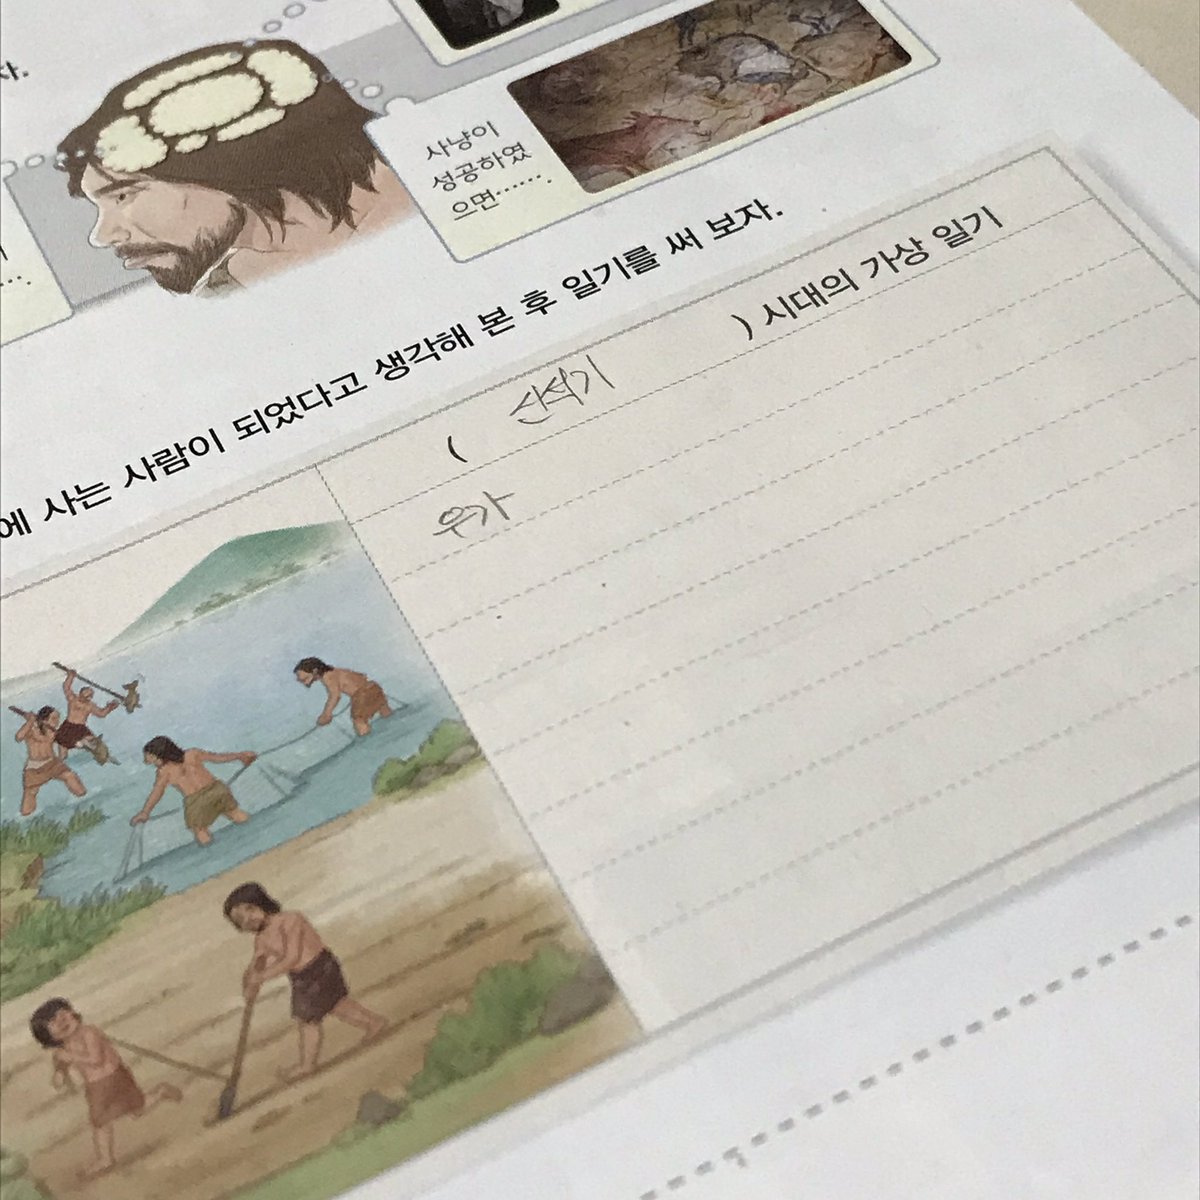 자.
사냥이
성공하였
으면…….
에 사는 사람이 되었다고 생각해 본 후 일기를 써 보자.
( 신석기 ) 시대의 가상 일기
우가